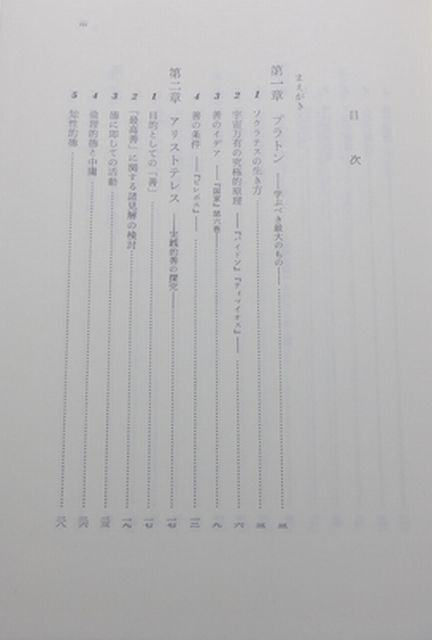 目次
まえがき
第一章 プラトン ――学ぶべき最大のもの――
1 ソクラテスの生き方
2 宇宙万有の究極的原理 ――『パイドン』『ティマイオス』――
3 善のイデア ――『国家』第六巻――
4 善の条件 ――『ピレボス』――
第二章 アリストテレス ――実践的善の探究――
1 目的としての「善」 一七
2 「最高善」に関する諸見解の検討 一九
3 徳に即しての活動
4 倫理的徳と中庸
5 知性的徳